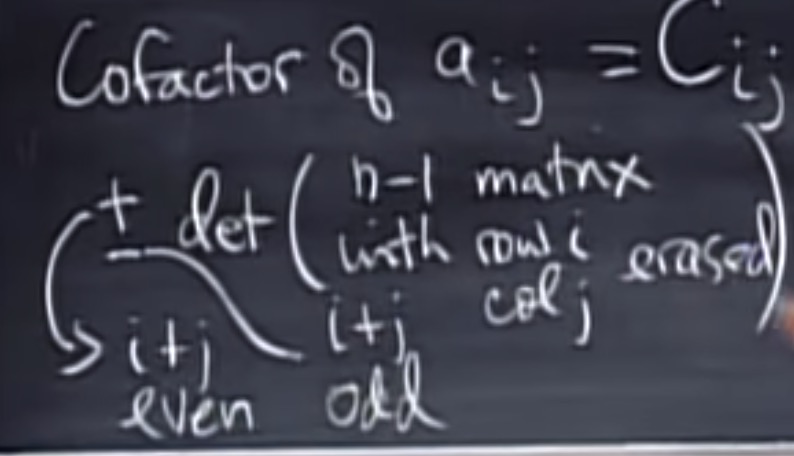 Cofactor of aij = Cij
± det ( n-1 matrix
with row i erased )
col j
i+j even
i+j odd